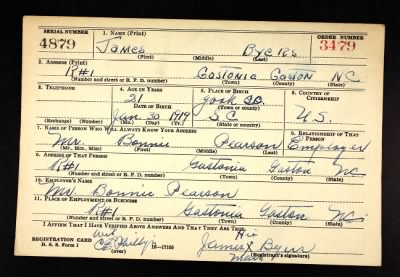 SERIAL NUMBER 1. NAME (Print) ORDER NUMBER
4879 James Byers 3479
(First) (Middle) (Last)
2. ADDRESS (Print)
R#1 Gastonia Gaston NC
(Number and street or R. F. D. number) (Town) (County) (State)
3. TELEPHONE 4. AGE IN YEARS 5. PLACE OF BIRTH 6. COUNTRY OF CITIZENSHIP
21 York
DATE OF BIRTH (Town or county)
Jan 30 1919 S C U.S.
(Exchange) (Number) (Mo.) (Day) (Yr.) (State or country)
7. NAME OF PERSON WHO WILL ALWAYS KNOW YOUR ADDRESS 8. RELATIONSHIP OF THAT PERSON
Mr. Bonnie Pearson Employer
(Mr., Mrs., Miss) (First) (Middle) (Last)
9. ADDRESS OF THAT PERSON
R#1 Gastonia Gaston NC
(Number and street or R. F. D. number) (Town) (County) (State)
10. EMPLOYER'S NAME
Mr. Bonnie Pearson
11. PLACE OF EMPLOYMENT OR BUSINESS
R#1 Gastonia Gaston NC
(Number and street or R. F. D. number) (Town) (County) (State)
I AFFIRM THAT I HAVE VERIFIED ABOVE ANSWERS AND THAT THEY ARE TRUE.
His
REGISTRATION CARD James X Byers
D. S. S. Form 1 (over) 16—17105 Mark (Registrant's signature)